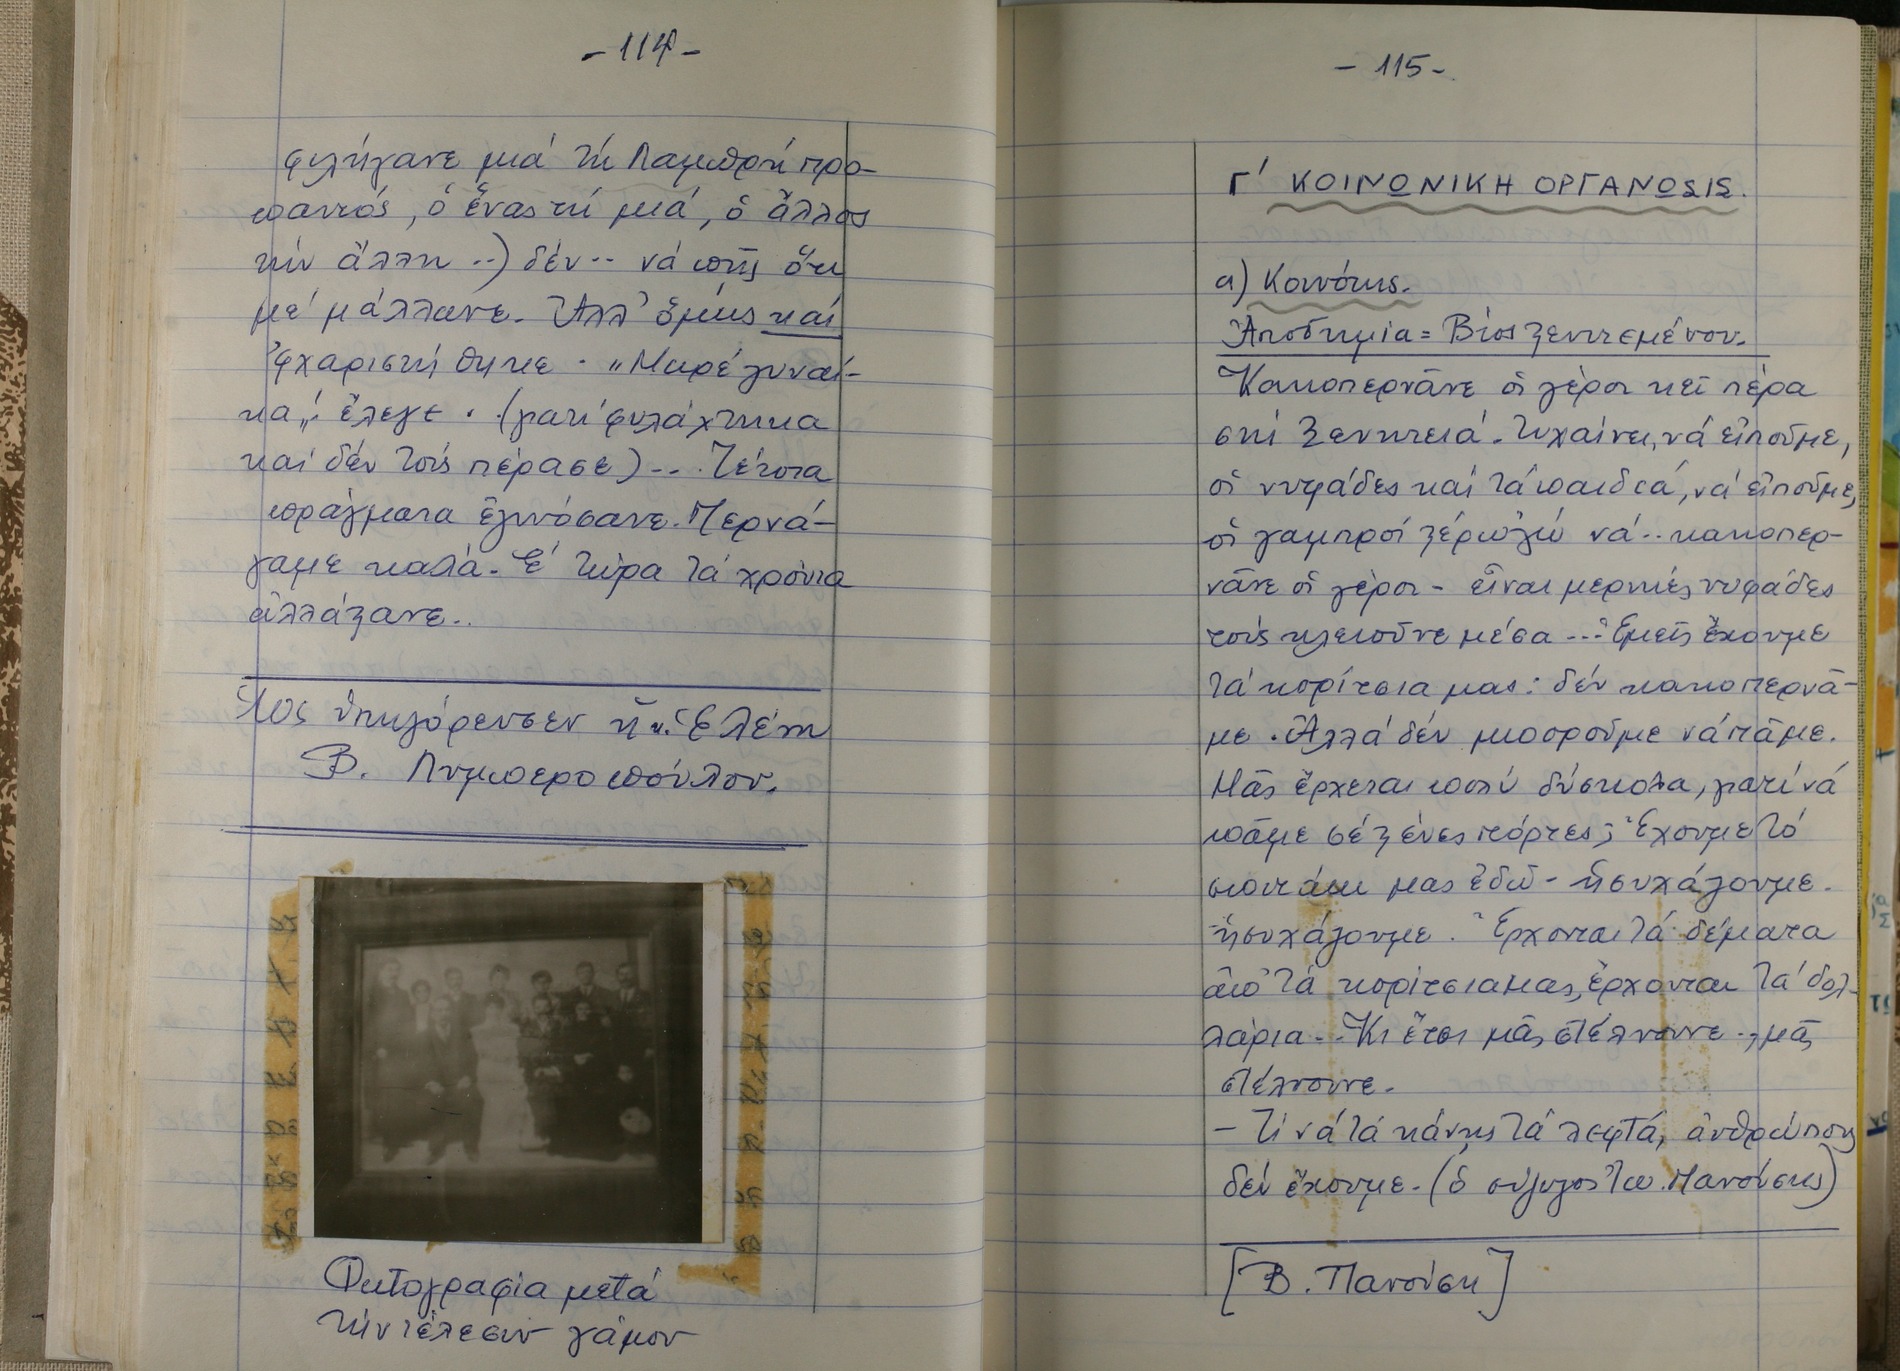 -114-
φυλήγανε μιά τή Λαμπρή προ-
παντός, ὁ ἕνας τή μιά, ὁ ἄλλος
τήν ἄλλη ..) δέν .. νά πῇς ὅτι
μέ μάλλωνε. Ἀλλ' ὅμως καί
'φχαριστήθηκε . "Μωρέ γυναί-
κα", ἔλεγε . (γιατί φυλάχτηκα
καί δέν τούς πέρασε) ... Τέτοια
πράγματα ἐγινόσανε. Περνά-
γαμε καλά. Ἔ τώρα τά χρόνια
ἀλλάξανε..
ὑπηγόρευσεν ἡ κ. Ἑλένη
Β. Λυμπεροπούλου.
Φωτογραφία μετά
τήν τέλεσιν γάμου
- 115 -
Γ' ΚΟΙΝΩΝΙΚΗ ΟΡΓΑΝΩΣΙΣ.
α) Κοινότης.
Ἀποδημία = Βίος ξενιτεμένου.
Κακοπερνᾶνε οἱ γέροι κεῖ πέρα
στή Ξενητειά. Τυχαίνει, νά εἰποῦμε,
οἱ νυφάδες καί τά παιδιά, νά εἰποῦμε,
οἱ γαμπροί ξέρω 'γώ νά .. κακοπερ-
νᾶνε οἱ γέροι - εἶναι μερικές νυφάδες
τούς κλειοῦνε μέσα ... Ἐμεῖς ἔχουμε
τά κορίτσια μας: δέν κακοπερνᾶ-
με . Ἀλλά δέν μποροῦμε νά πᾶμε.
Μᾶς ἔρχεται πολύ δύσκολα, γιατί νά
πᾶμε σέ ξένες πόρτες; Ἔχουμε τό
σπιτάκι μας ἐδῶ - ἡσυχάζουμε.
ἡσυχάζουμε . Ἔρχονται τά δέματα
ἀπό τά κορίτσια μας, ἔρχονται τά δολ-
λάρια .. Κι ἔτσι μᾶς στέλνουνε .., μᾶς
στέλνουνε.
- Τί νά τά κάνῃς τά λεφτά, ἀνθρώπους
δέν ἔχουμε. (ὁ σύζυγός τω Πανούσης)
[Β. Πανούση]